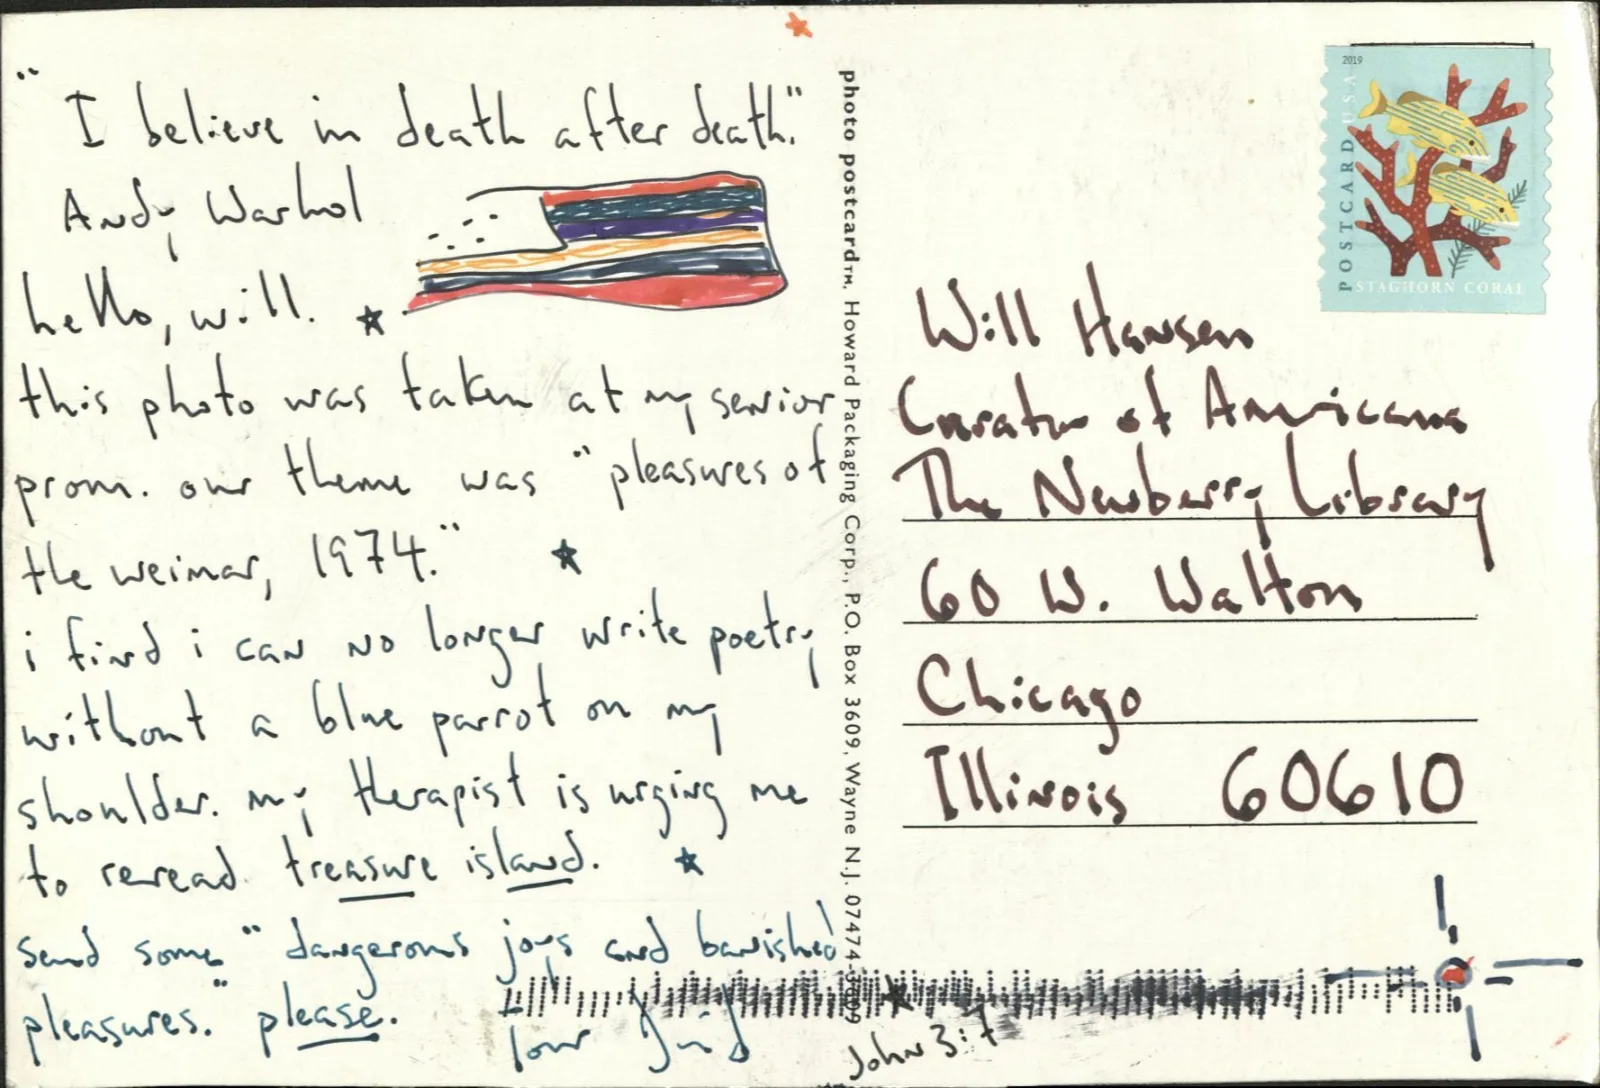 "I believe in death after death."
Andy Warhol
hello, will.
this photo was taken at my senior
prom. our theme was "pleasures of
the weimar, 1974."
i find i can no longer write poetry
without a blue parrot on my
shoulder. my therapist is urging me
to reread treasure island.
send some "dangerous joys and banished
pleasures." please.
your
John 3:7
photo postcard™, Howard Packaging Corp., P.O. Box 3609, Wayne N.J. 07474-3609
2019
POSTCARD USA
STAGHORN CORAL
Will Hansen
Curator of Americana
The Newberry Library
60 W. Walton
Chicago
Illinois 60610